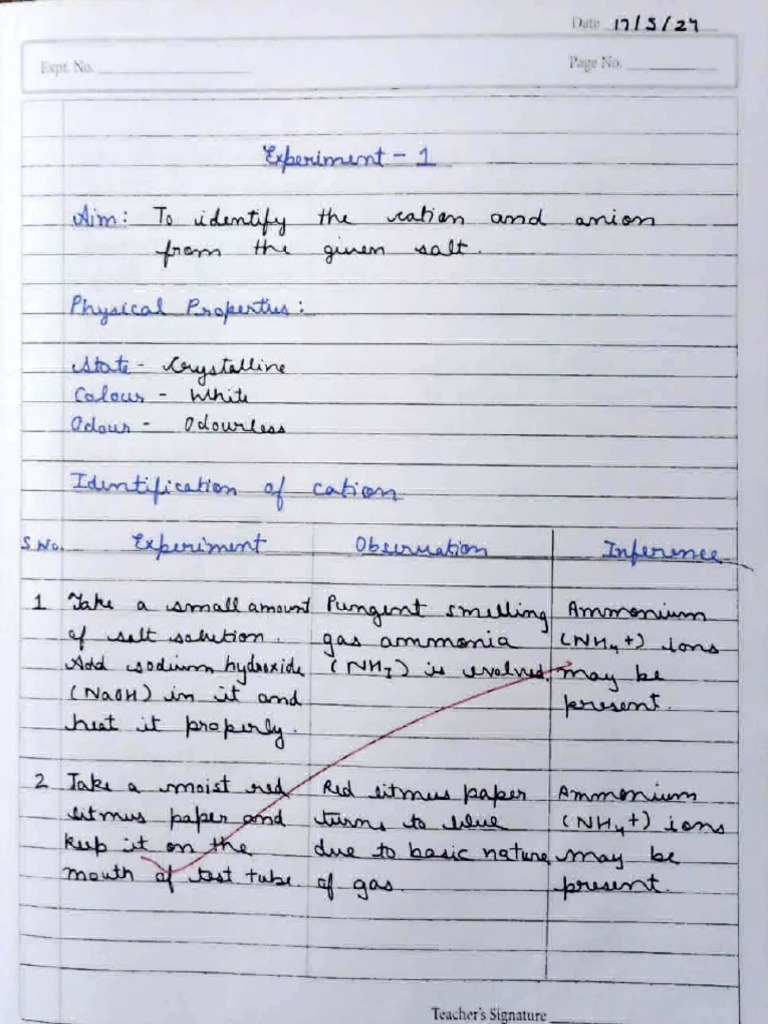 Date 17/5/24
Expt. No.
Page No.
Experiment - 1
Aim: To identify the cation and anion
from the given salt.
Physical Properties:
State - Crystalline
Colour - White
Odour - Odourless
Identification of cation
S No. Experiment Observation Inference
1 Take a small amount Pungent smelling Ammonium
of salt solution. gas ammonia (NH4+) ions
Add sodium hydroxide (NH3) is evolved. may be
(NaOH) in it and present.
heat it properly.
2 Take a moist red Red litmus paper Ammonium
litmus paper and turns to blue (NH4+) ions
keep it on the due to basic nature may be
mouth of test tube. of gas. present.
Teacher's Signature